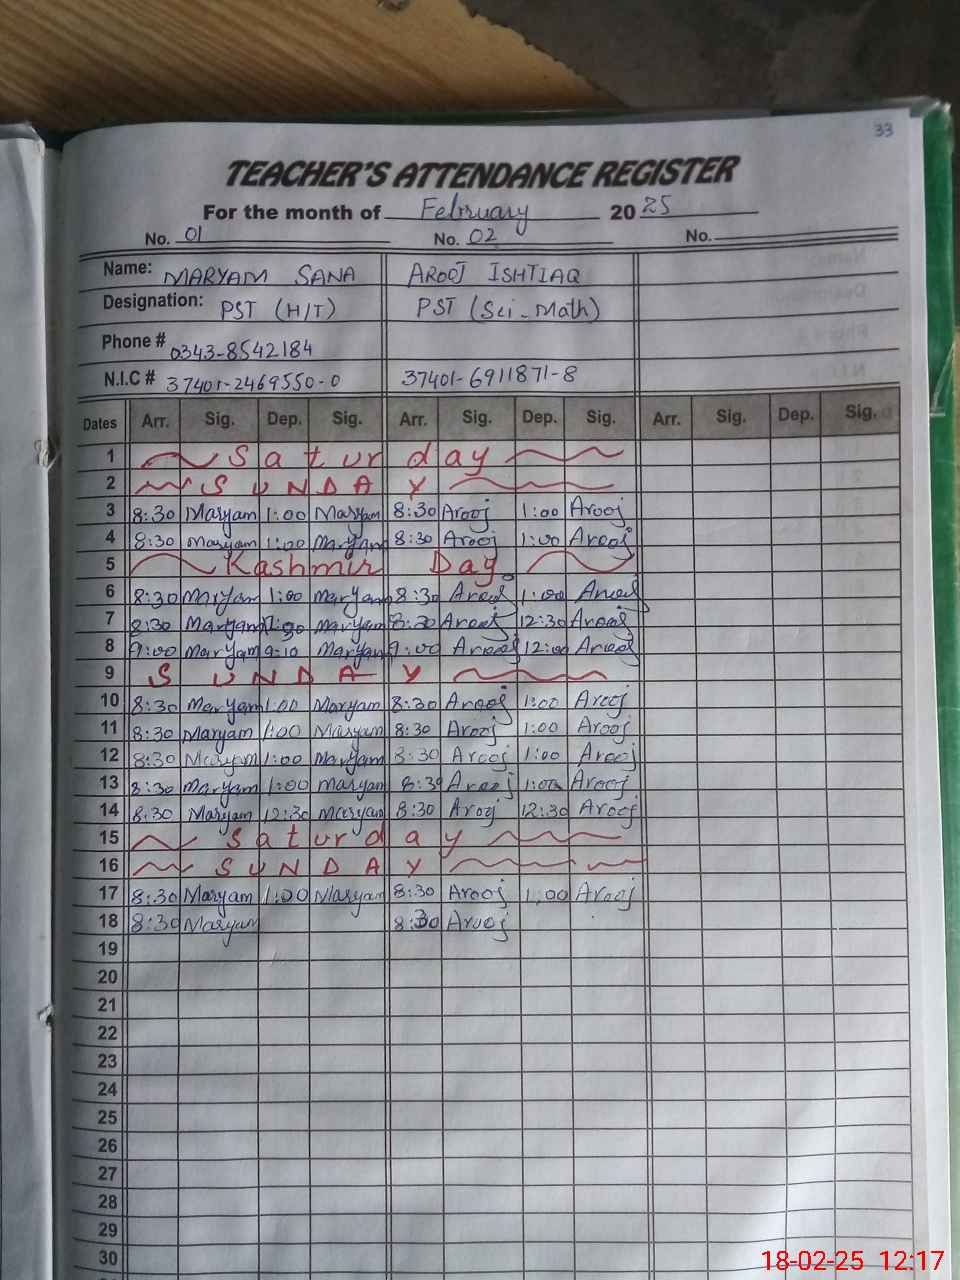 33
TEACHER'S ATTENDANCE REGISTER
For the month of February 2025
No. 01 No. 02 No.
Name: MARYAM SANA AROOJ ISHTIAQ
Designation: PST (H/T) PST (Sci-Math)
Phone # 0343-8542184
N.I.C # 37401-2469550-0 37401-6911871-8
Dates Arr. Sig. Dep. Sig. Arr. Sig. Dep. Sig. Arr. Sig. Dep. Sig.
1 Saturday
2 SUNDAY
3 8:30 Maryam 1:00 Maryam 8:30 Arooj 1:00 Arooj
4 8:30 Maryam 1:00 Maryam 8:30 Arooj 1:00 Arooj
5 Kashmir Day
6 8:30 Maryam 1:00 Maryam 8:30 Arooj 1:00 Arooj
7 8:30 Maryam Maryam 8:30 Arooj 12:30 Arooj
8 9:00 Maryam Maryam 9:00 Arooj 12:00 Arooj
9 SUNDAY
10 8:30 Maryam 1:00 Maryam 8:30 Arooj 1:00 Arooj
11 8:30 Maryam 1:00 Maryam 8:30 Arooj 1:00 Arooj
12 8:30 Maryam 1:00 Maryam 8:30 Arooj 1:00 Arooj
13 8:30 Maryam 1:00 Maryam 8:30 Arooj 1:00 Arooj
14 8:30 Maryam 12:30 Maryam 8:30 Arooj 12:30 Arooj
15 Saturday
16 SUNDAY
17 8:30 Maryam 1:00 Maryam 8:30 Arooj 1:00 Arooj
18 8:30 Maryam 8:30 Arooj
19
20
21
22
23
24
25
26
27
28
29
30
18-02-25 12:17